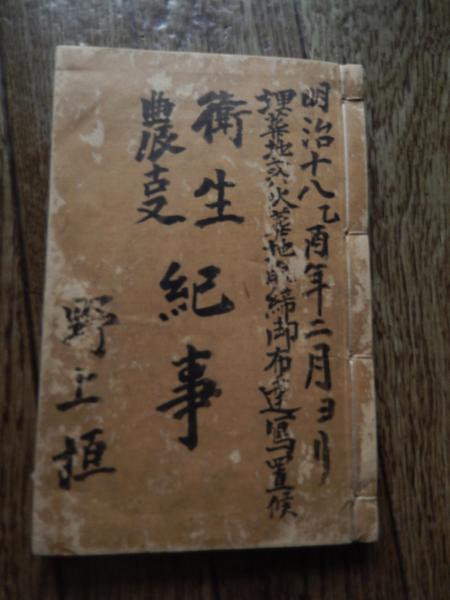 明治十八乙酉年二月ヨリ
埋葬地或火葬地取締御布達寫置候
衛生紀事
農叟
野上垣